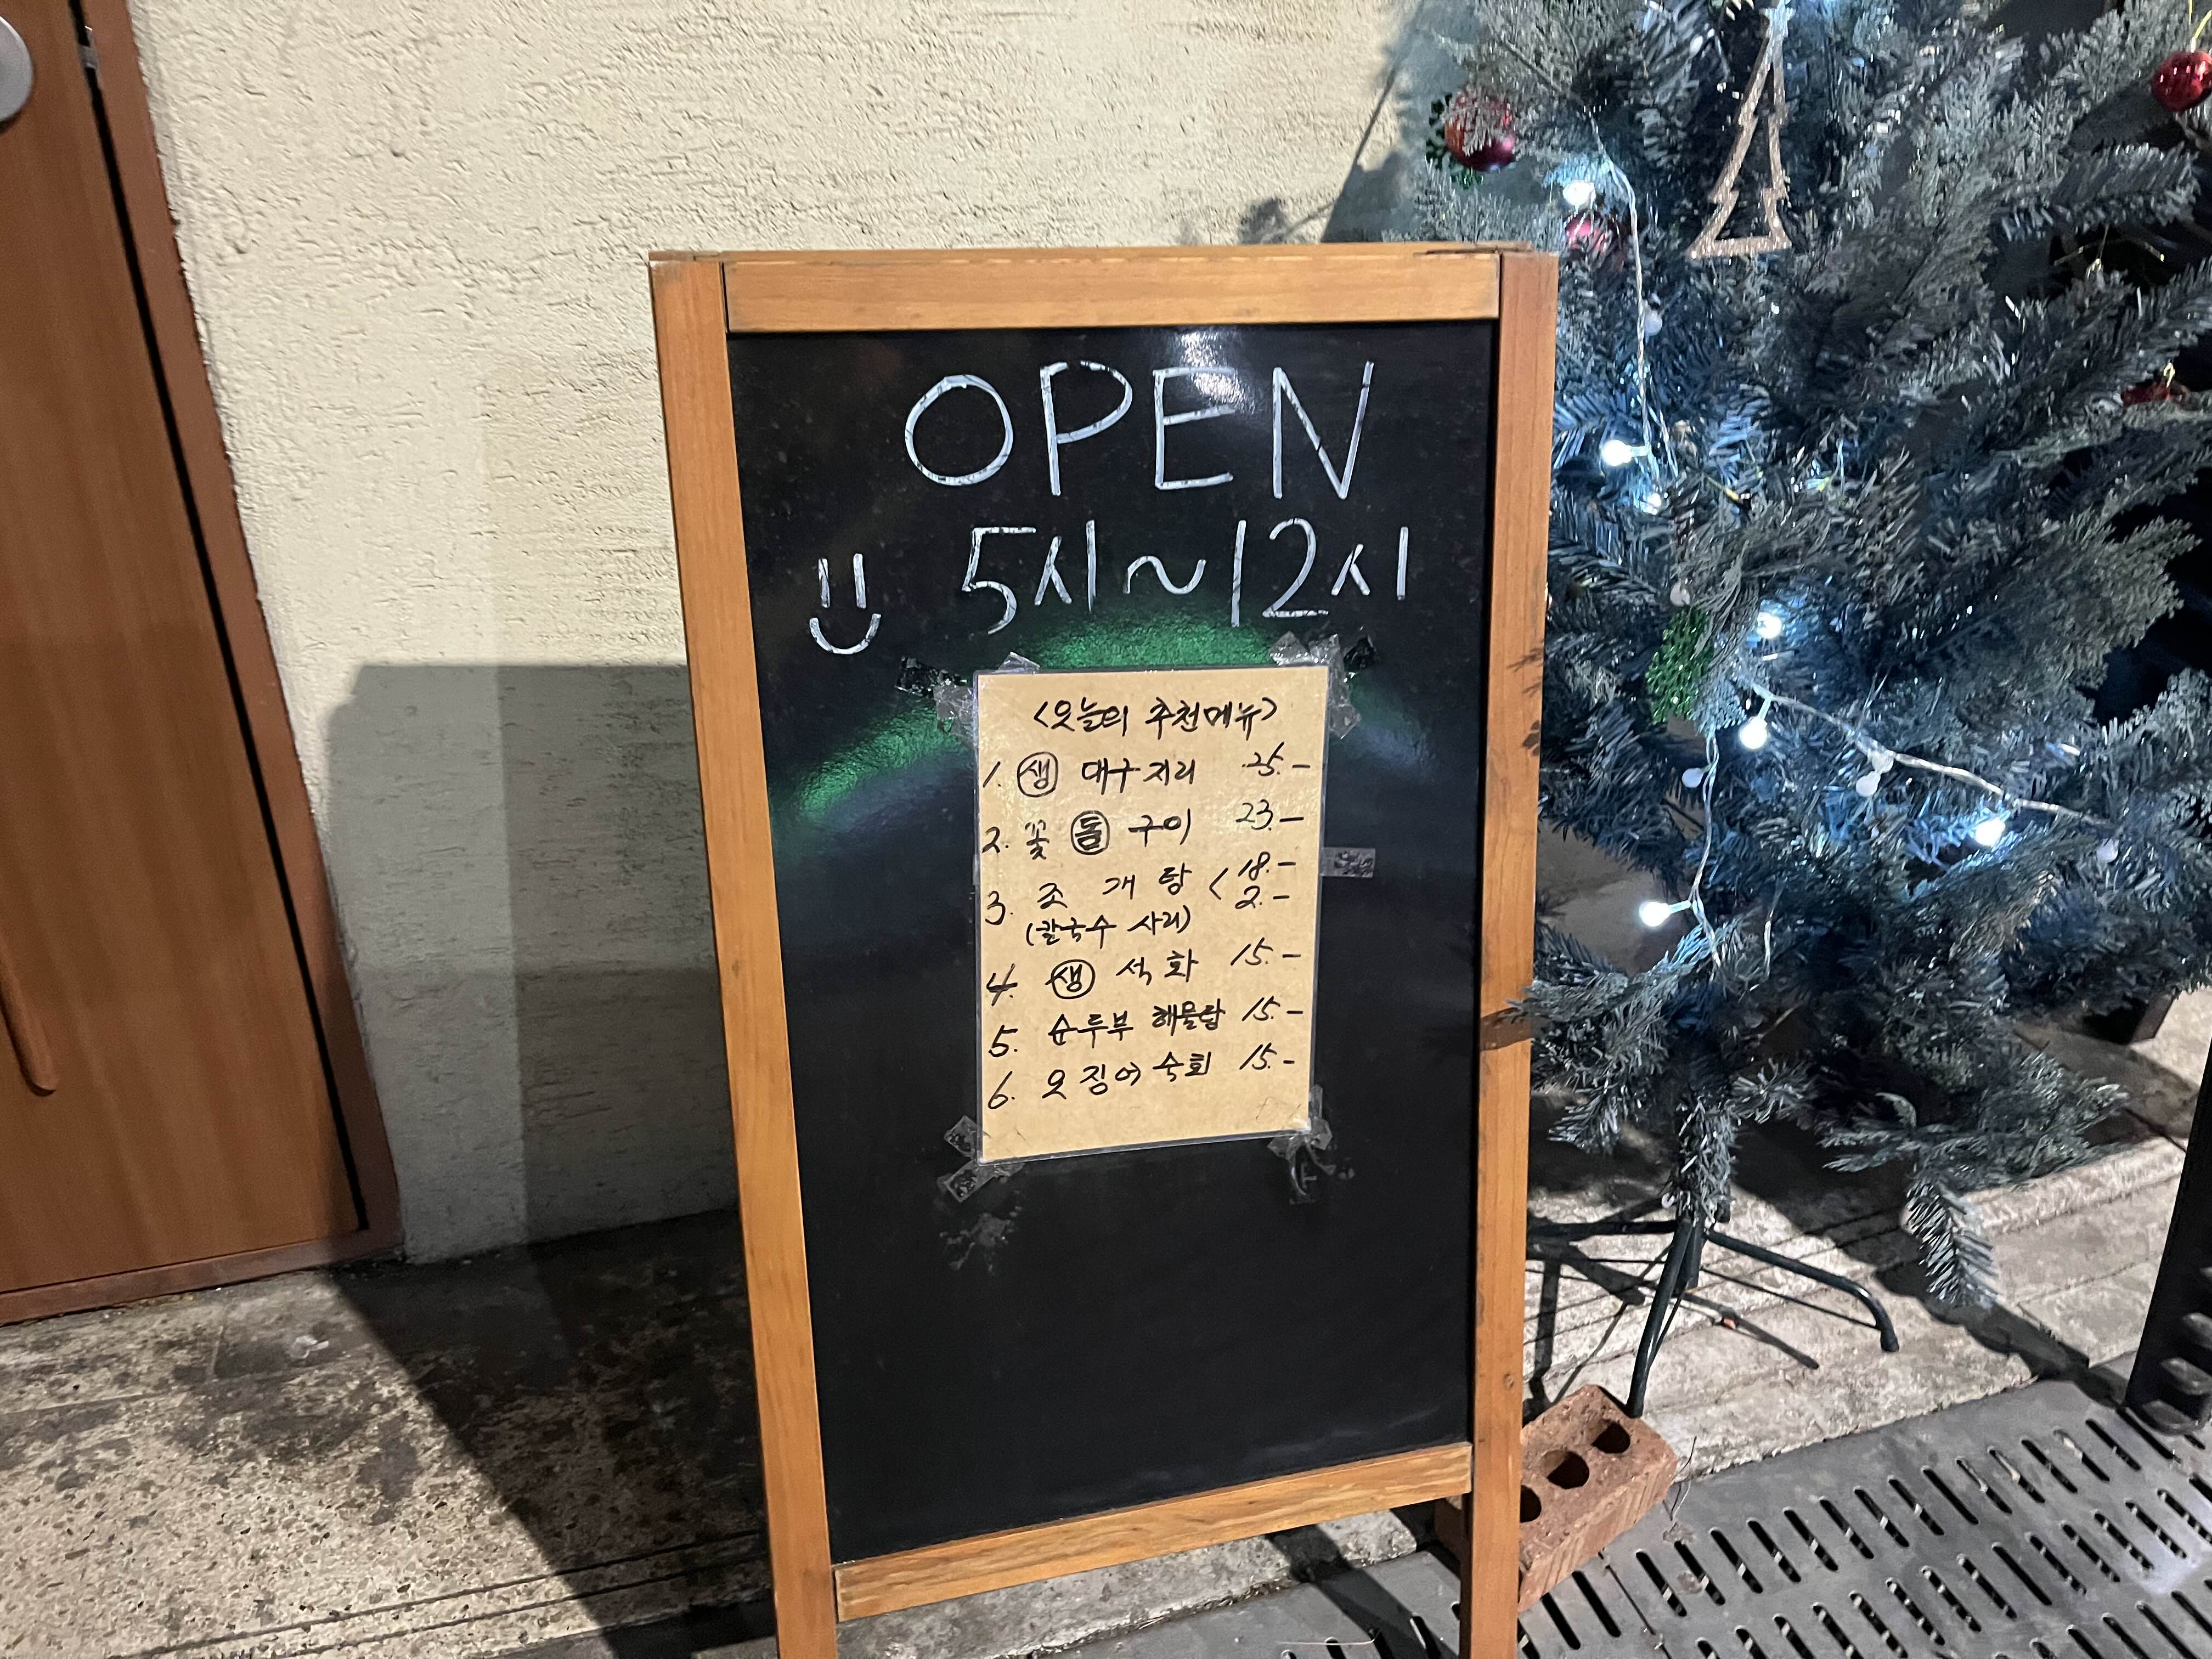 OPEN
5시~12시
<오늘의 추천메뉴>
1. 생 대구지리 25.-
2. 꽃 돔 구이 23.-
3. 조개탕 < 18.-
(칼국수 사리) 2.-
4. 생 석화 15.-
5. 순두부 해물탕 15.-
6. 오징어숙회 15.-